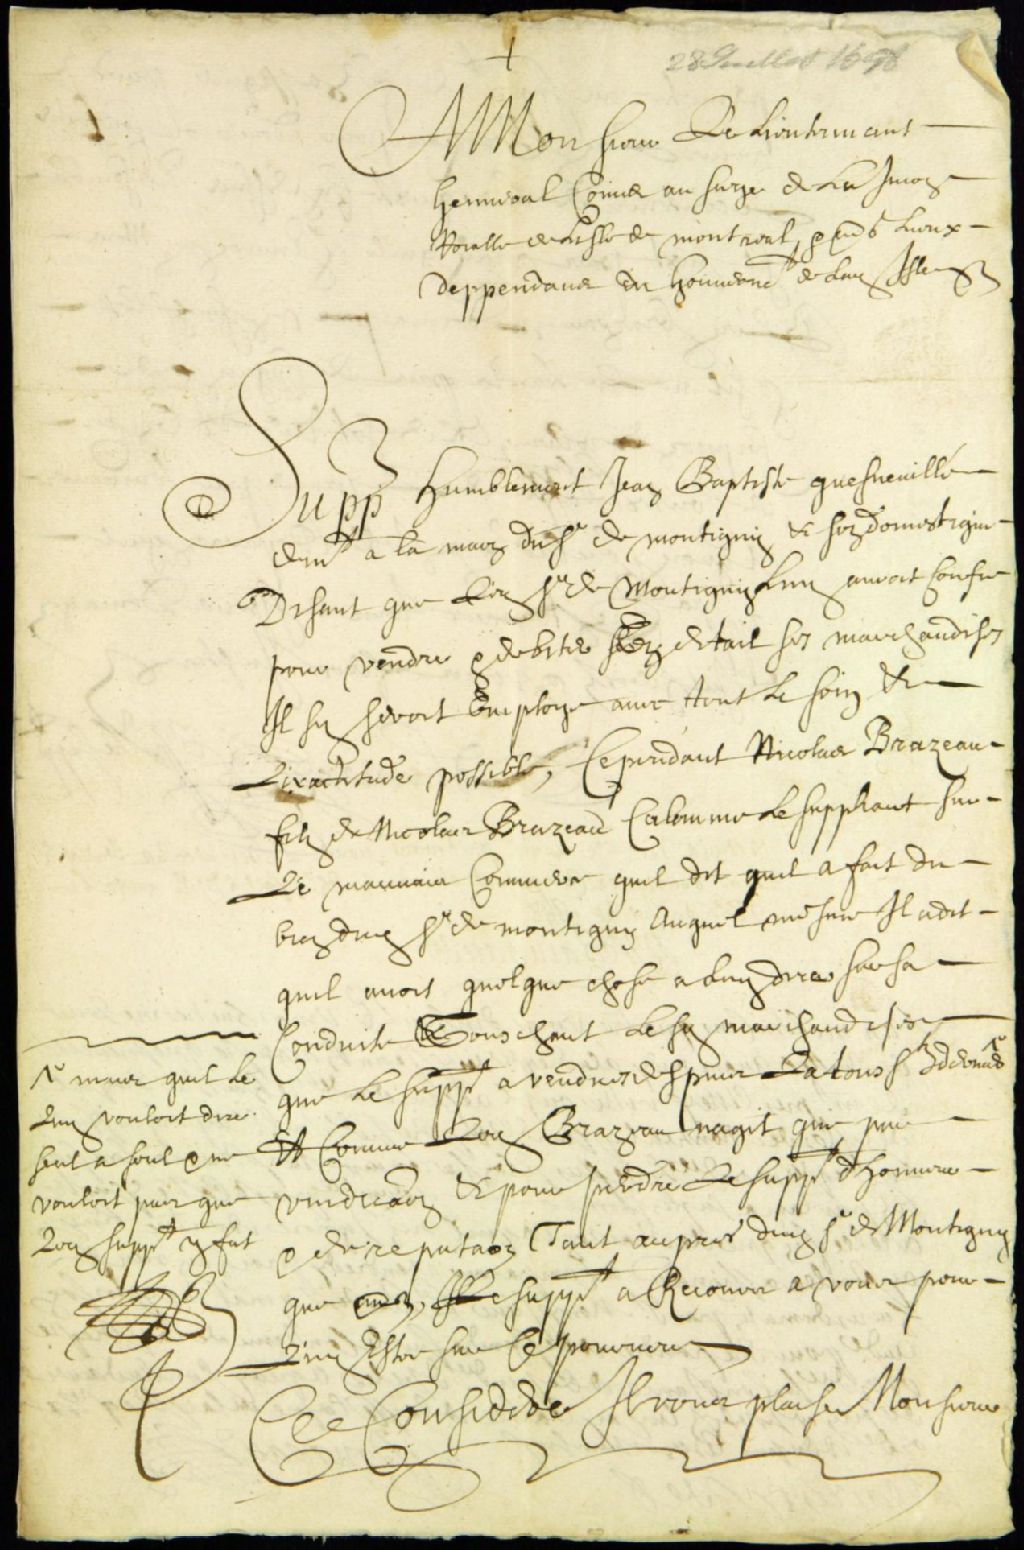 28 Juillet 1698
A Monsieur Le Lieutenant
General Civil au siege de La Juron
Roialle de Lisle de montreal, & autres Lieux
deppendans du Gouvernt de Lad Isle
Supp humblement Jean Baptiste quesneuille
demt a la maon du Sr de montigny & son domestique
Disant que Led Sr de Montigny Luy auroit Confie
pour vendre & debiter en detail ses marchandises
Il sy seroit Employe avec tout Le soin &
Lexactitude possible, Cependant Nicolas Brazeau
fils de Nicolas Brazeau Calomnie Le suppliant sur
Le mauvais Commerce quil dit quil a fait du
bien dud Sr de montigny Auquel mesme Il a dit
quil avoit quelque chose a Luy dire sur sa
Conduite Touchant Lesd marchandises
que Le suppt a vendues depuis
Et Comme Led Brazeau nagit que par
vindicaon & pour perdre Le suppt dhonneur
& de reputaon Tant aupres dud Sr de Montigny
que Le suppt a Recours a vous pour
Luy Estre sur Ce pourveu
Ce Consideré Il vous plaise Monsieur
mais quil Le
Luy vouloit dire
seul a seul & ne
vouloit pas que
Led suppt y fut